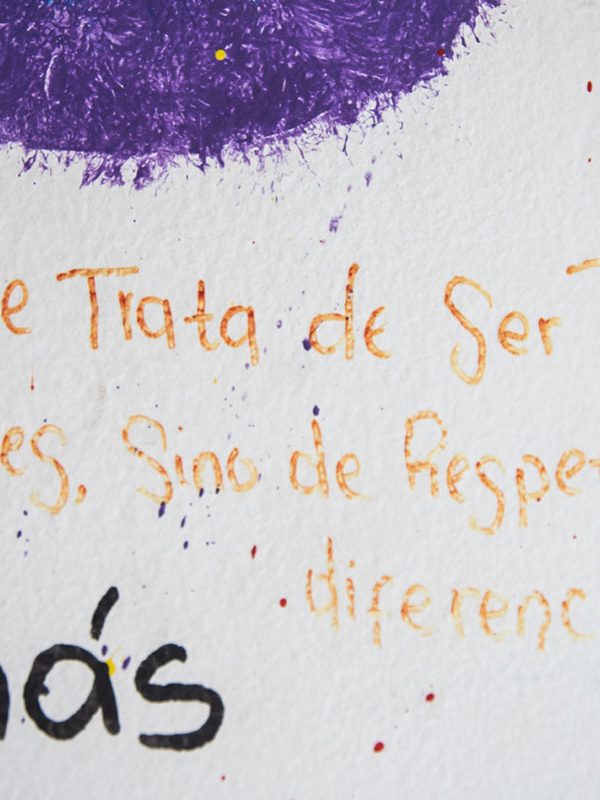 e Trata de Ser
es, Sino de Respe
diferenc
ás